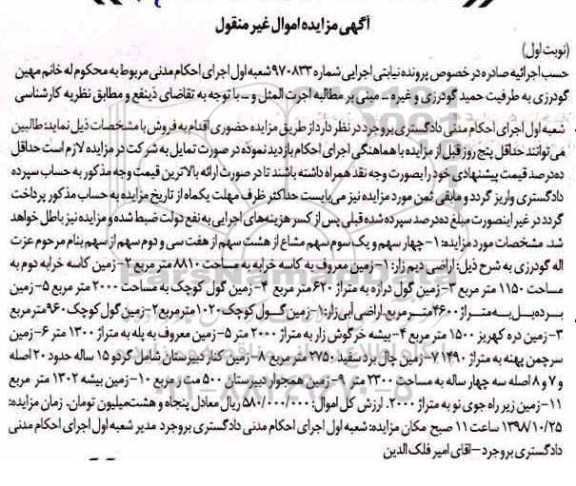 آگهی مزایده اموال غیر منقول
(نوبت اول)
حسب اجرائیه صادره در خصوص پرونده نیابتی اجرایی شماره ۹۷۰۸۳۳ شعبه اول اجرای احکام مدنی مربوط به محکوم له خانم مهین
گودرزی به طرفیت حمید گودرزی و غیره ـ مبنی بر مطالبه اجرت المثل و ـ با توجه به تقاضای ذینفع و مطابق نظریه کارشناسی
شعبه اول اجرای احکام مدنی دادگستری بروجرد در نظر دارد از طریق مزایده حضوری اقدام به فروش با مشخصات ذیل نماید: طالبین
می توانند حداقل پنج روز قبل از مزایده با هماهنگی اجرای احکام بازدید نموده در صورت تمایل به شرکت در مزایده لازم است حداقل
ده درصد قیمت پیشنهادی خود را بصورت وجه نقد همراه داشته باشند تا در صورت ارائه بالاترین قیمت وجه مذکور به حساب سپرده
دادگستری واریز گردد و مابقی ثمن مورد مزایده نیز می بایست حداکثر ظرف مهلت یکماه از تاریخ مزایده به حساب مذکور پرداخت
گردد در غیر اینصورت مبلغ ده درصد سپرده شده قبلی پس از کسر هزینه های اجرایی به نفع دولت ضبط شده و مزایده نیز باطل خواهد
شد. مشخصات مورد مزایده: ۱- چهار سهم و یک سوم سهم مشاع از هشت سهم از هفت سی و دوم سهم از سهم بنام مرحوم عزت
اله گودرزی به شرح ذیل: اراضی دیم زار: ۱- زمین معروف به کاسه خرابه به مساحت ۸۸۱۰ متر مربع ۲- زمین کاسه خرابه دوم به
مساحت ۱۱۵۰ متر مربع ۳- زمین گول درازه به متراژ ۶۲۰ متر مربع ۴- زمین گول کوچک به مساحت ۲۰۰۰ متر مربع ۵- زمین
برده بل به متراژ ۴۶۰۰ متر مربع. اراضی آبی زار: ۱- زمین گول کوچک ۱۰۲۰ متر مربع ۲- زمین گول کوچک ۹۶۰ متر مربع
۳- زمین دره کهریز ۱۵۰۰ متر مربع ۴- بیشه خرگوش زار به متراژ ۲۰۰۰ متر ۵- زمین معروف به پله به متراژ ۱۳۰۰ متر ۶- زمین
سرچمن پهنه به متراژ ۱۴۹۰ ۷- زمین چال برد سفید ۲۷۵۰ متر مربع ۸- زمین کنار دبیرستان شامل گردو ۱۵ ساله حدود ۲۰ اصله
و ۷ و ۸ اصله سه چهار ساله به مساحت ۲۳۰۰ متر ۹- زمین همجوار دبیرستان ۵۰۰ متر مربع ۱۰- زمین بیشه ۱۳۰۲ متر مربع
۱۱- زمین زیر راه جوی نو به متراژ ۲۰۰۰. ارزش کل اموال: ۵۸۰/۰۰۰/۰۰۰ ریال معادل پنجاه و هشت میلیون تومان. زمان مزایده:
۱۳۹۸/۱۰/۲۵ ساعت ۱۱ صبح مکان مزایده: شعبه اول اجرای احکام مدنی دادگستری بروجرد مدیر شعبه اول اجرای احکام مدنی
دادگستری بروجرد - آقای امیر فلک الدین